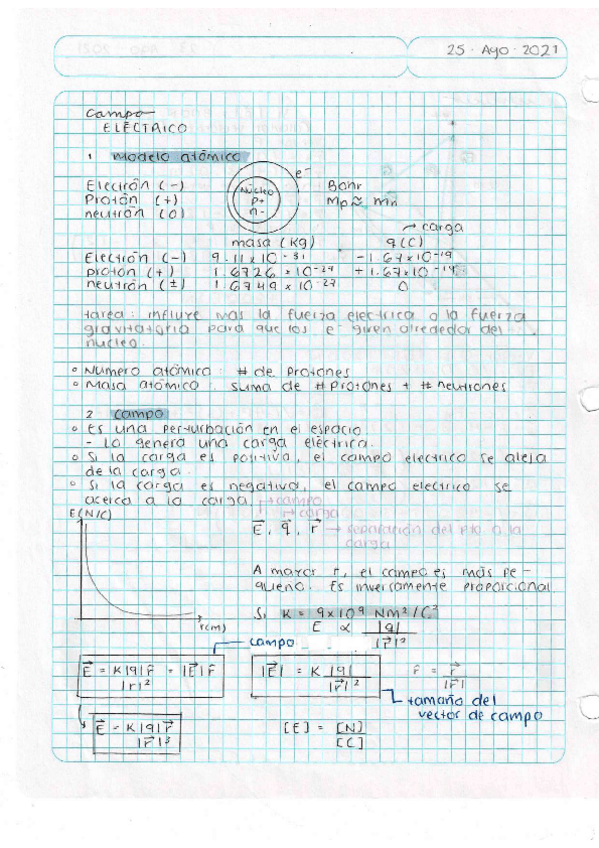 25 · Ago · 2021
Campo
ELÉCTRICO
1 Modelo atómico
e⁻
Electrón (-)
Protón (+)
neutrón (0)
Núcleo
P+
n-
Bohr
Mp ≈ mn
→ carga
masa (kg) q (C)
Electrón (-) 9.11 x 10⁻³¹ - 1.67x10⁻¹⁹
protón (+) 1.6726 x 10⁻²⁷ + 1.67x10⁻¹⁹
neutrón (±) 1.6749 x 10⁻²⁷ 0
tarea: influye mas la fuerza electrica o la fuerza
gravitatoria para que los e⁻ giren alrededor del
nucleo.
° Numero atómico: # de protones
° Masa atómica: suma de # protones + # neutrones
2 Campo
° Es una perturbación en el espacio
- Lo genera una carga eléctrica.
° Si la carga es positiva, el campo electrico se aleja
de la carga.
° Si la carga es negativa, el campo electrico se
acerca a la carga.
↳ campo
↳ carga
E (N/C)
E⃗, q⃗, r⃗ → separación del pto a la
carga
A mayor r, el campo es más pe-
queño. Es inversamente proporcional
r(m)
Si K = 9x10⁹ Nm²/C²
E ∝ |q| / |r⃗|²
campo
E⃗ = K|q| r̂ / |r|² = |E⃗| r̂
|E⃗| = K |q| / |r⃗|²
r̂ = r⃗ / |r⃗|
tamaño del
vector de campo
E⃗ = K|q|r⃗ / |r⃗|³
[E] = [N] / [C]